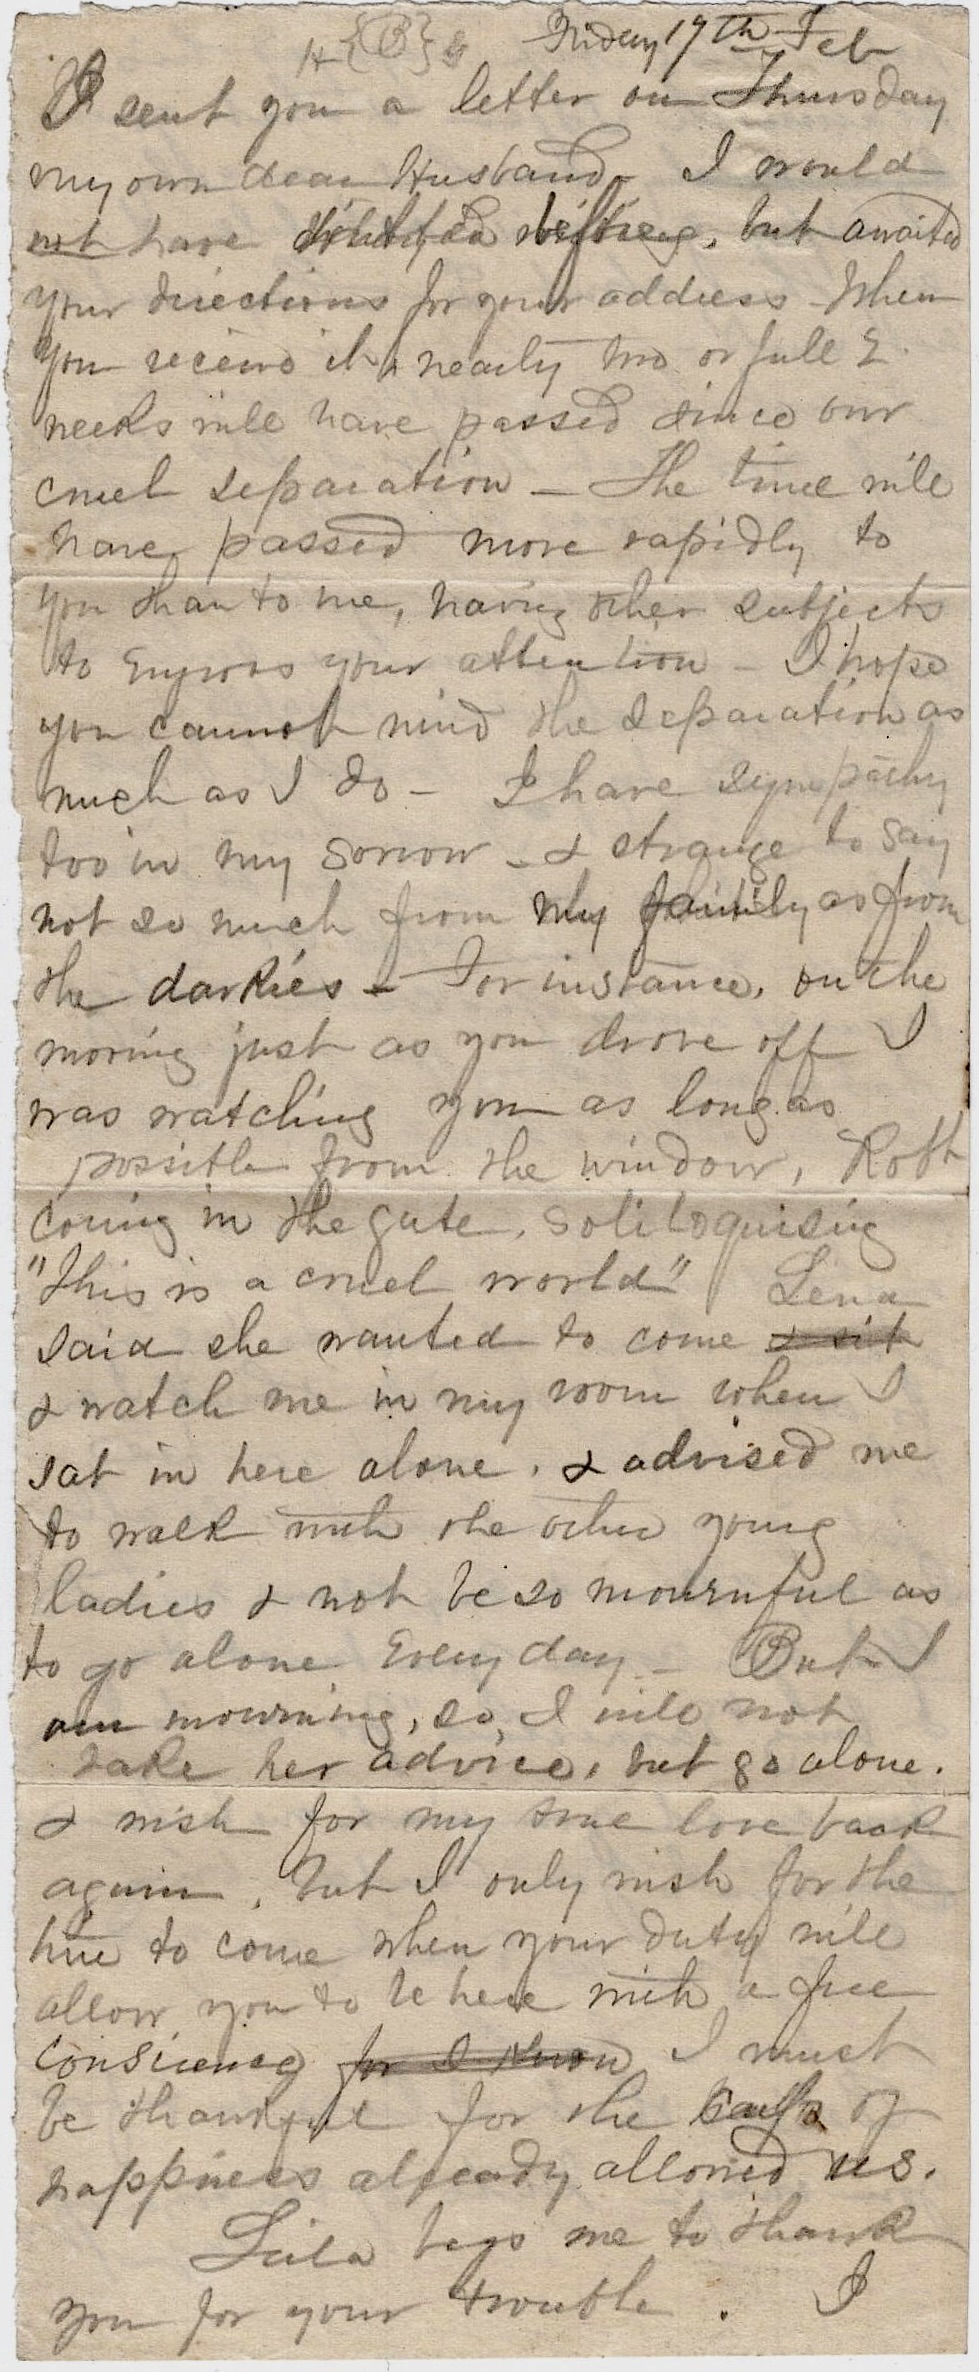 Friday 19th Feb
I sent you a letter on Thursday
my own dear Husband - I would
not have before, but awaited
your directions for your address - When
you recieve it, nearly two or full 2
weeks will have passed since our
cruel separation - The time will
have passed more rapidly to
you than to me, having other subjects
to engross your attention - I hope
you cannot mind the separation as
much as I do - I have sympathy
too in my sorrow - & strange to say
not so much from my family as from
the darkies - For instance, on the
morning just as you drove off I
was watching you as long as
possible from the window, Robt
coming in the gate, soliloquising
"This is a cruel world" Lena
said she wanted to come & sit
& watch me in my room when I
sat in here alone, & advised me
to walk with the other young
ladies & not be so mournful as
to go alone every day - But I
am mourning, so I will not
take her advice, but go alone.
& wish for my true love back
again, but I only wish for the
time to come when your duty will
allow you to be here with a free
consciencey for I know I must
be thankful for the of
happiness already allowed us.
Lila begs me to thank
you for your trouble. I